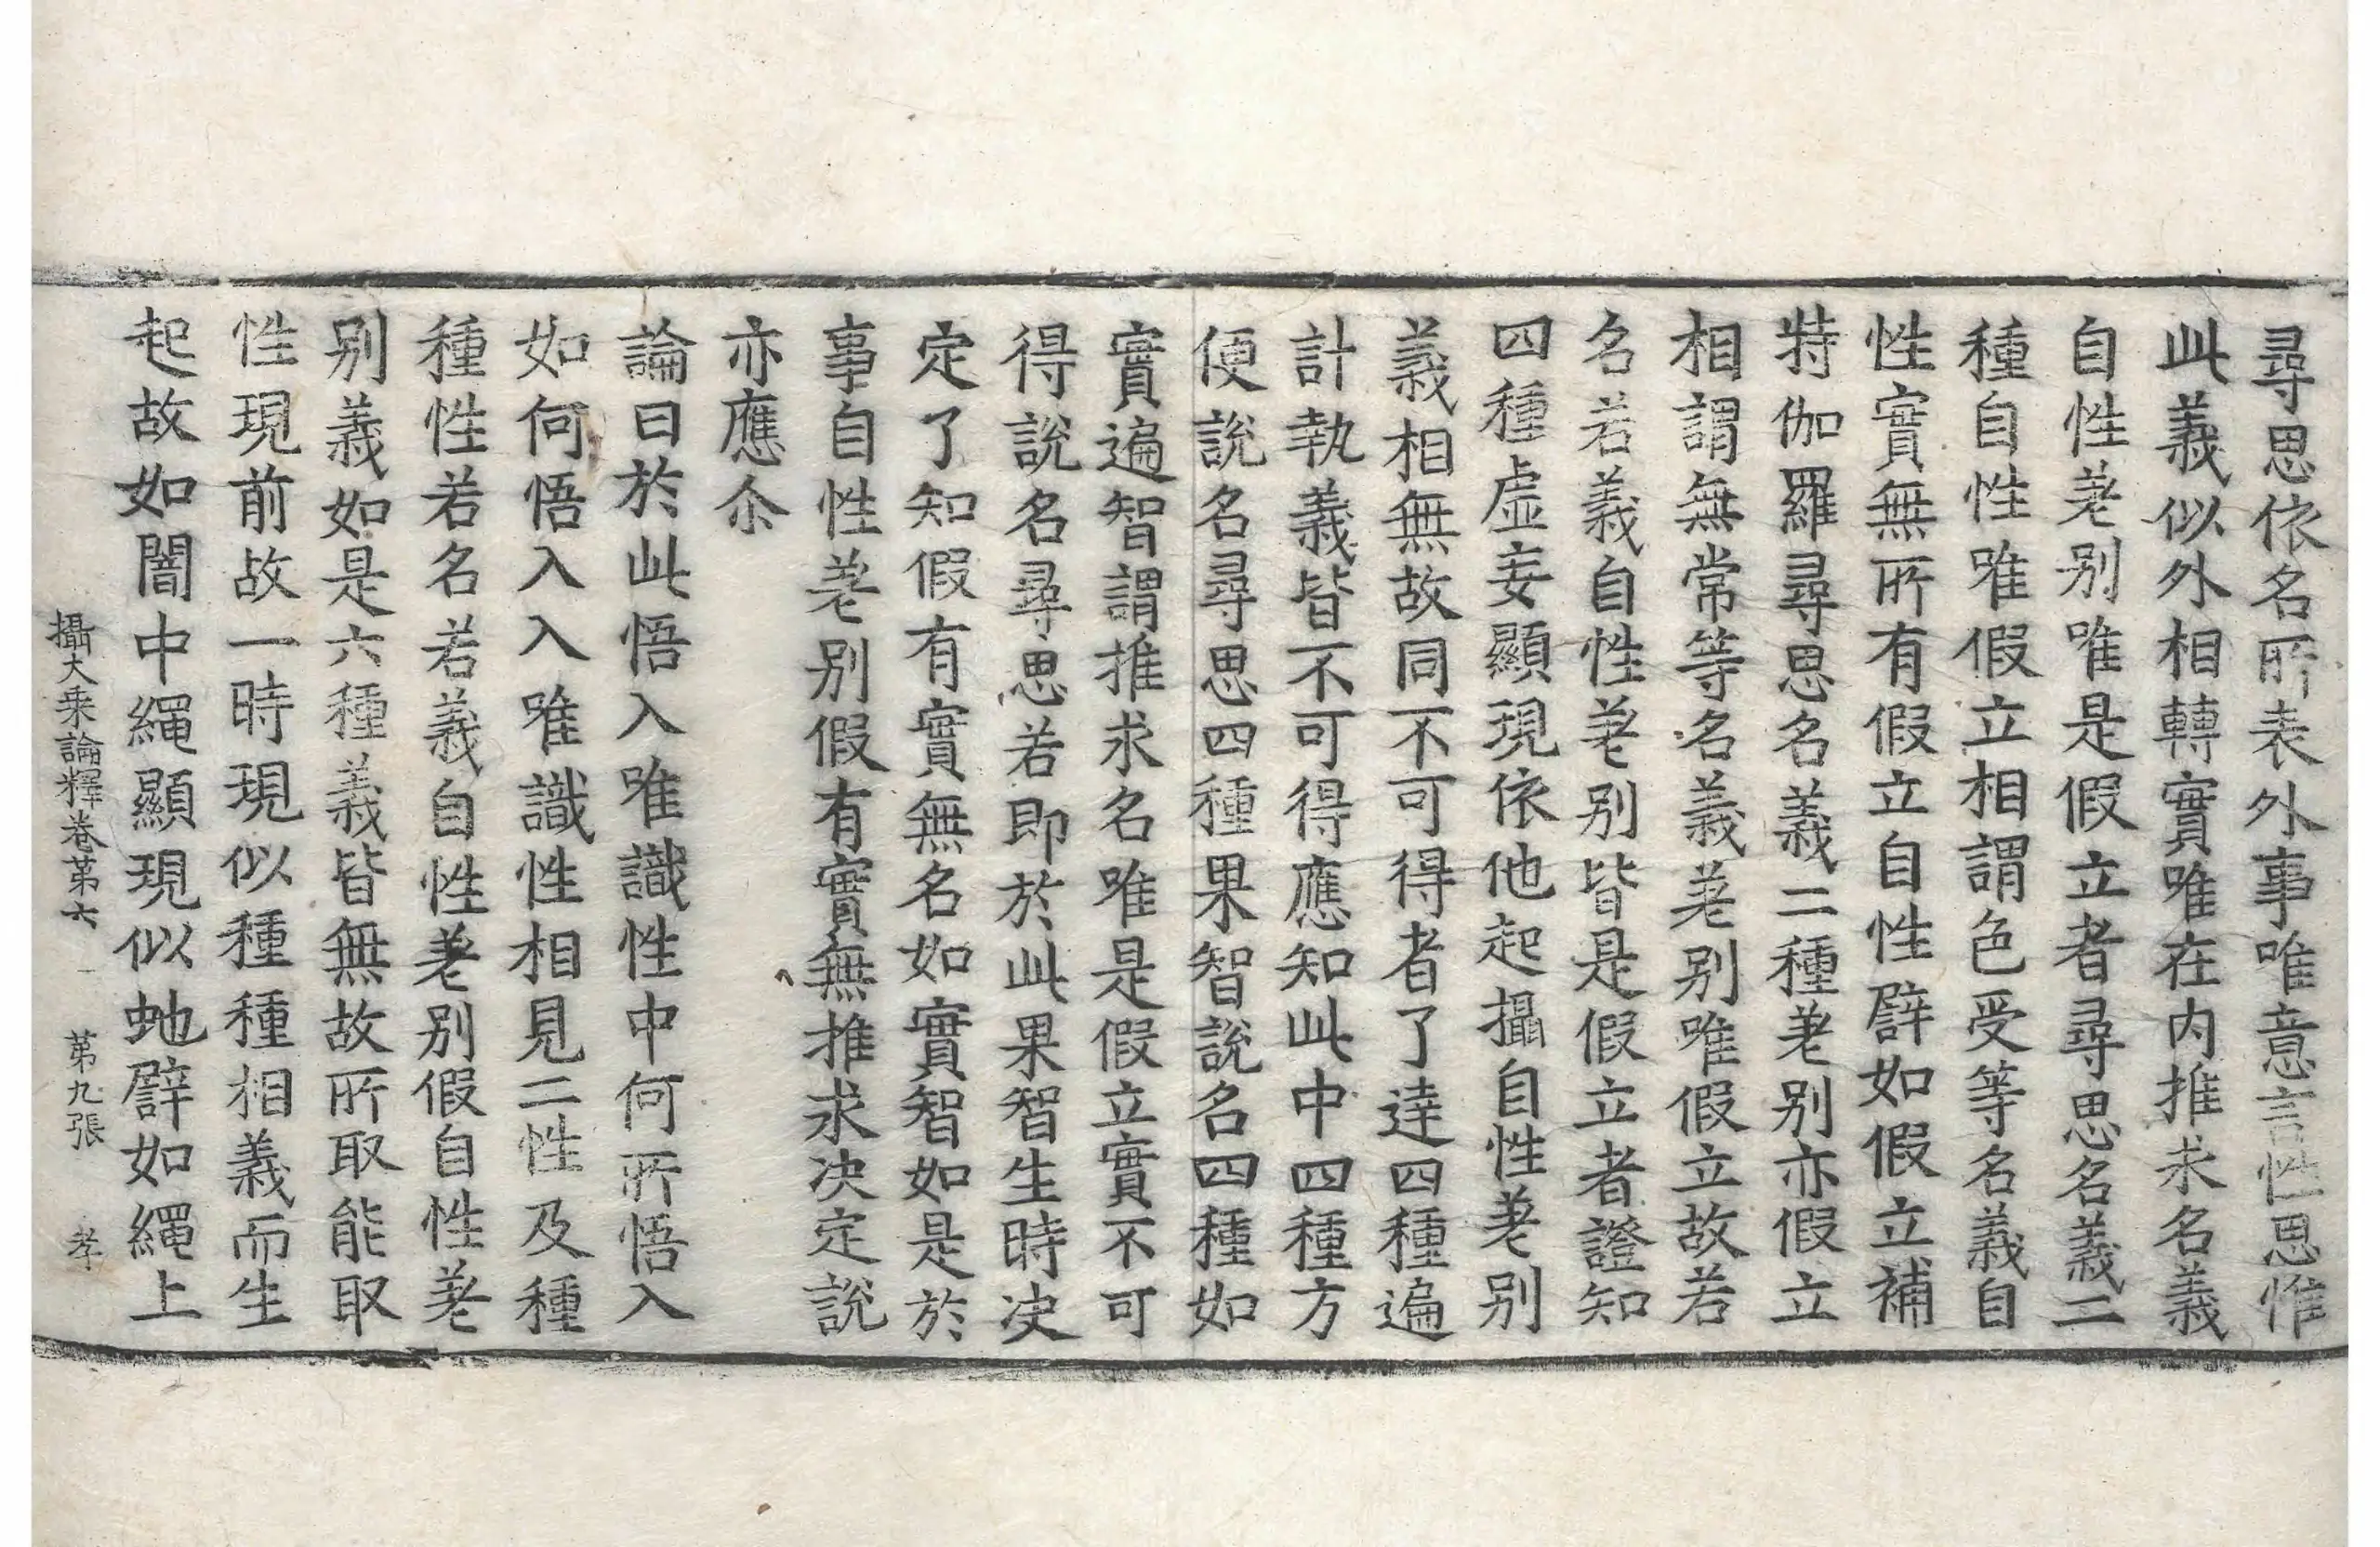 尋思依名所表外事唯意言性思惟
此義似外相轉實唯在内推求名義
自性差别唯是假立者尋思名義二
種自性唯假立相謂色受等名義自
性實無所有假立自性譬如假立補
特伽羅尋思名義二種差别亦假立
相謂無常等名義差别唯假立故若
名若義自性差别皆是假立者證知
四種虛妄顯現依他起攝自性差别
義相無故同不可得者了達四種遍
計執義皆不可得應知此中四種方
便說名尋思四種果智說名四種如
實遍智謂推求名唯是假立實不可
得說名尋思若即於此果智生時决
定了知假有實無名如實智如是於
事自性差别假有實無推求决定說
亦應尒
論曰於此悟入唯識性中何所悟入
如何悟入入唯識性相見二性及種
種性若名若義自性差别假自性差
别義如是六種義皆無故所取能取
性現前故一時現似種種相義而生
起故如闇中繩顯現似虵譬如繩上
攝大乘論釋卷第六 第九張 孝